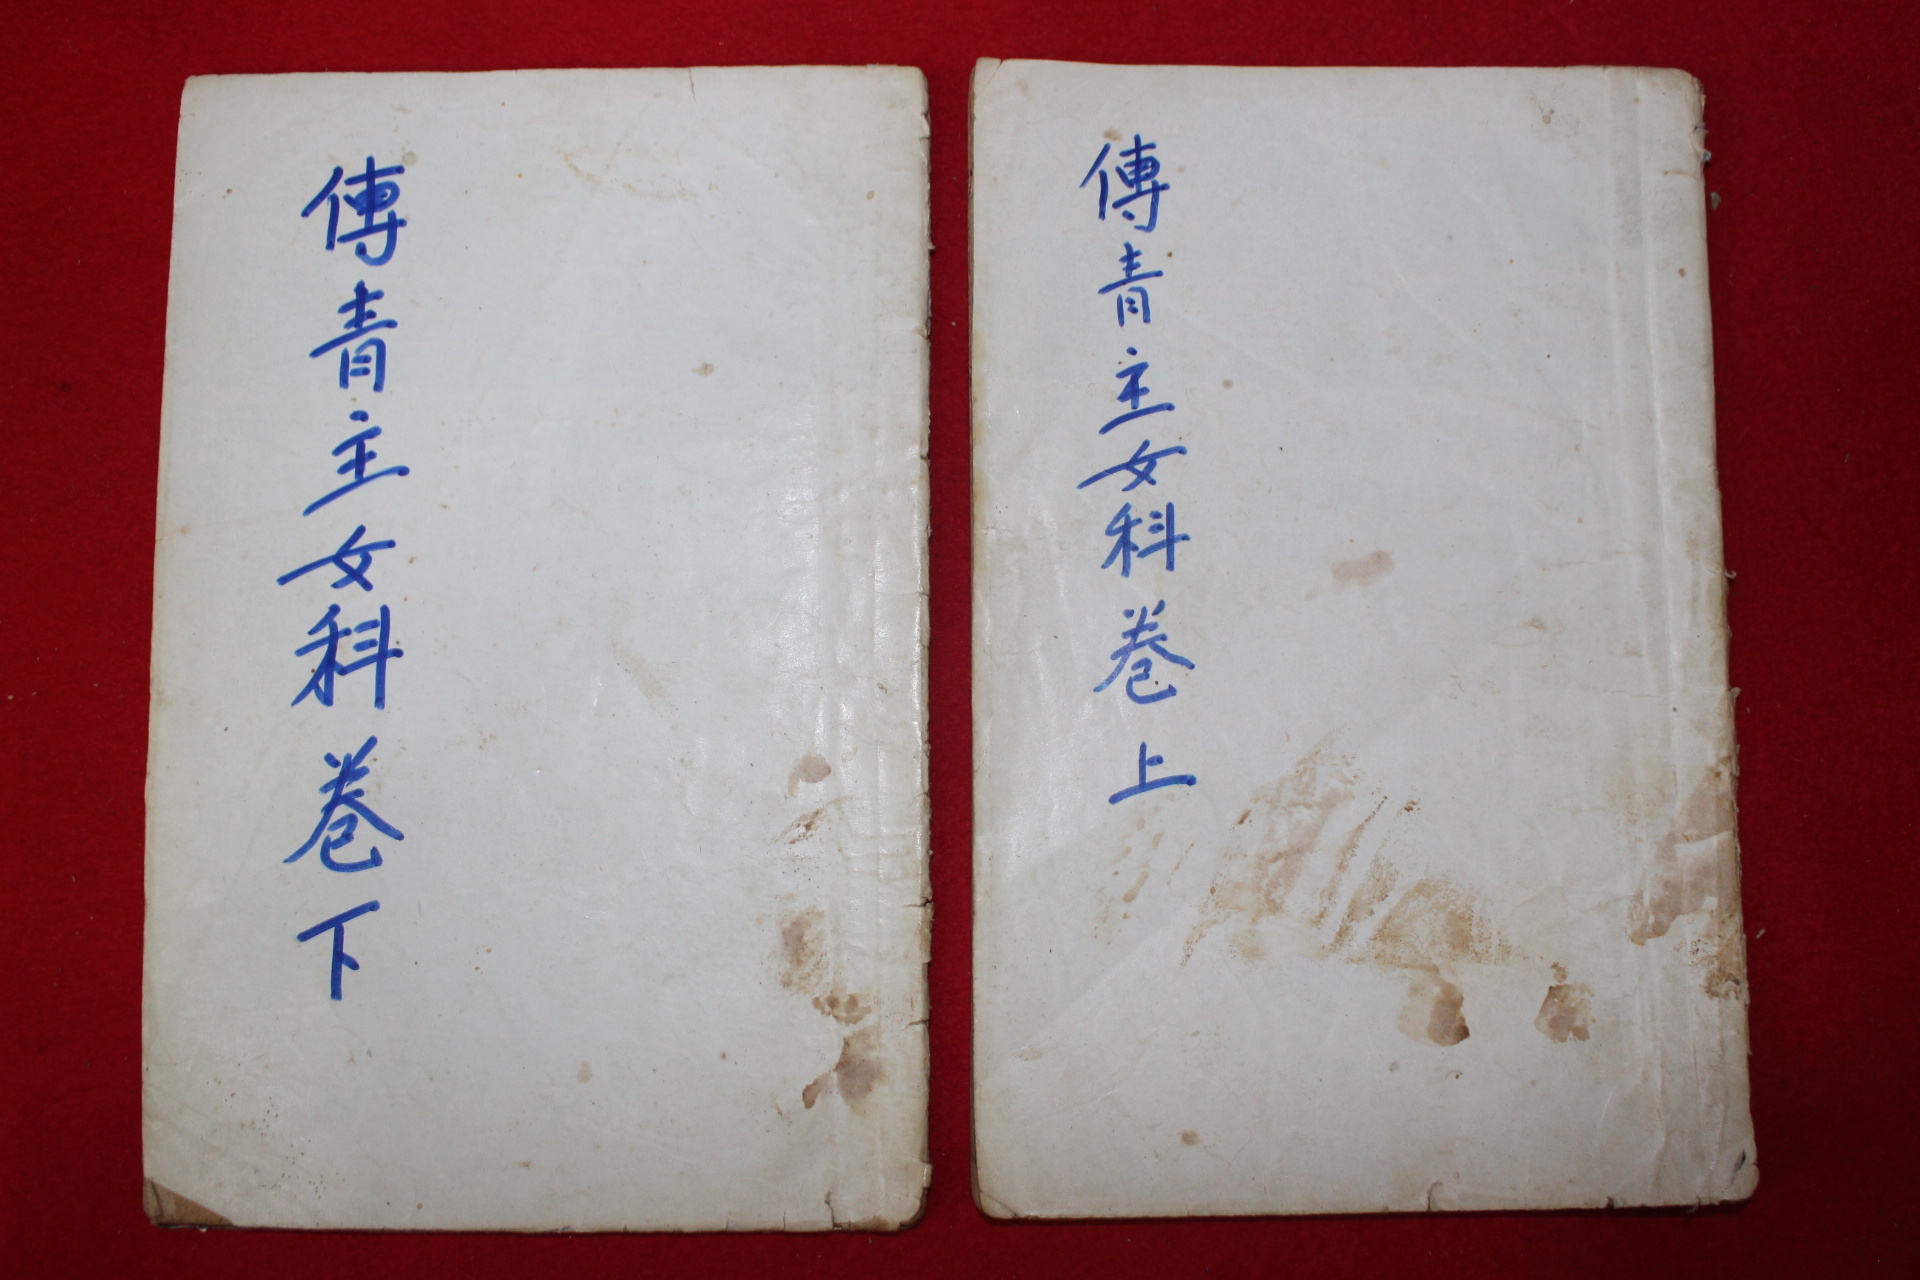 傳青主女科卷上
傳青主女科卷下